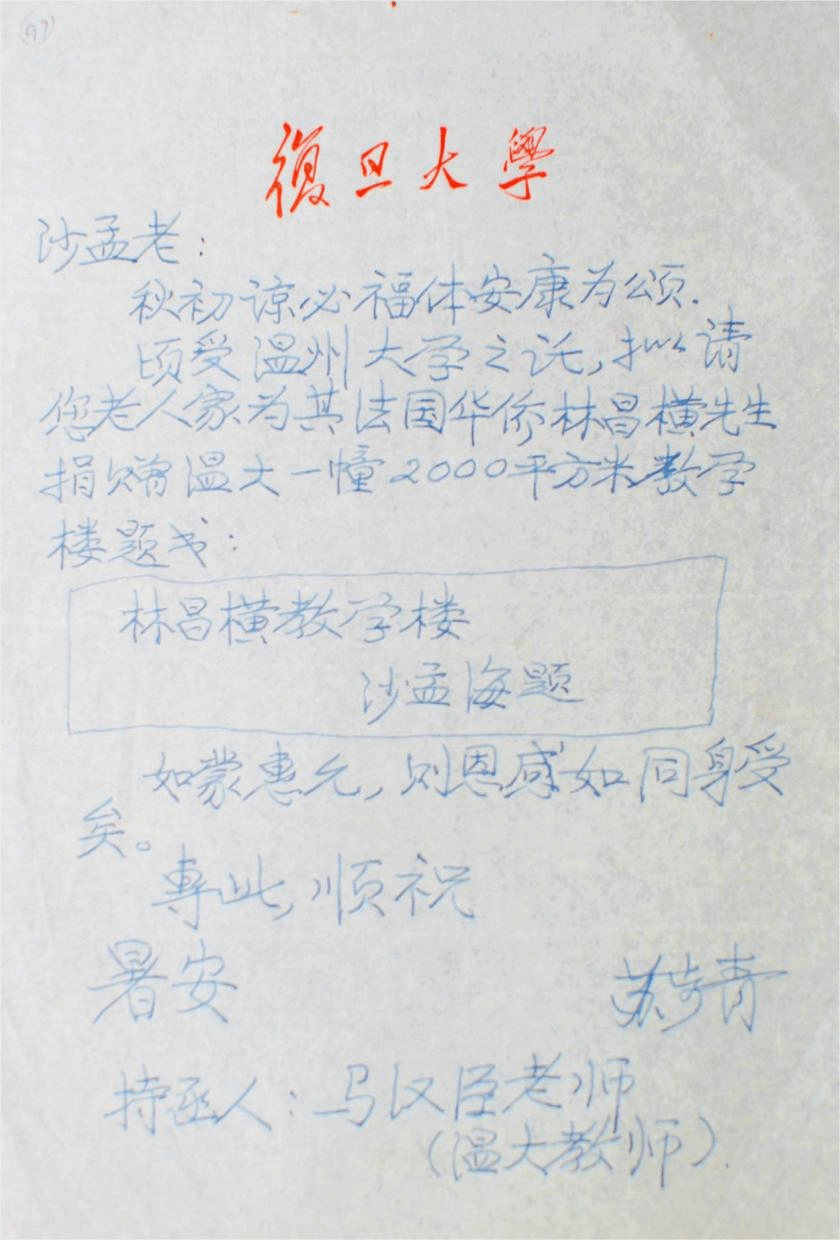 (97)
復旦大學
沙孟老：
秋初谅必福体安康为颂.
顷受温州大学之讬,拟请
您老人家为其法国华侨林昌横先生
捐赠温大一幢2000平方米教学
楼题书：
林昌横教学楼
沙孟海题
如蒙惠允,则恩感如同身受
矣。
專此,顺祝
暑安
苏步青
持函人：马汉臣老师
(温大教师).